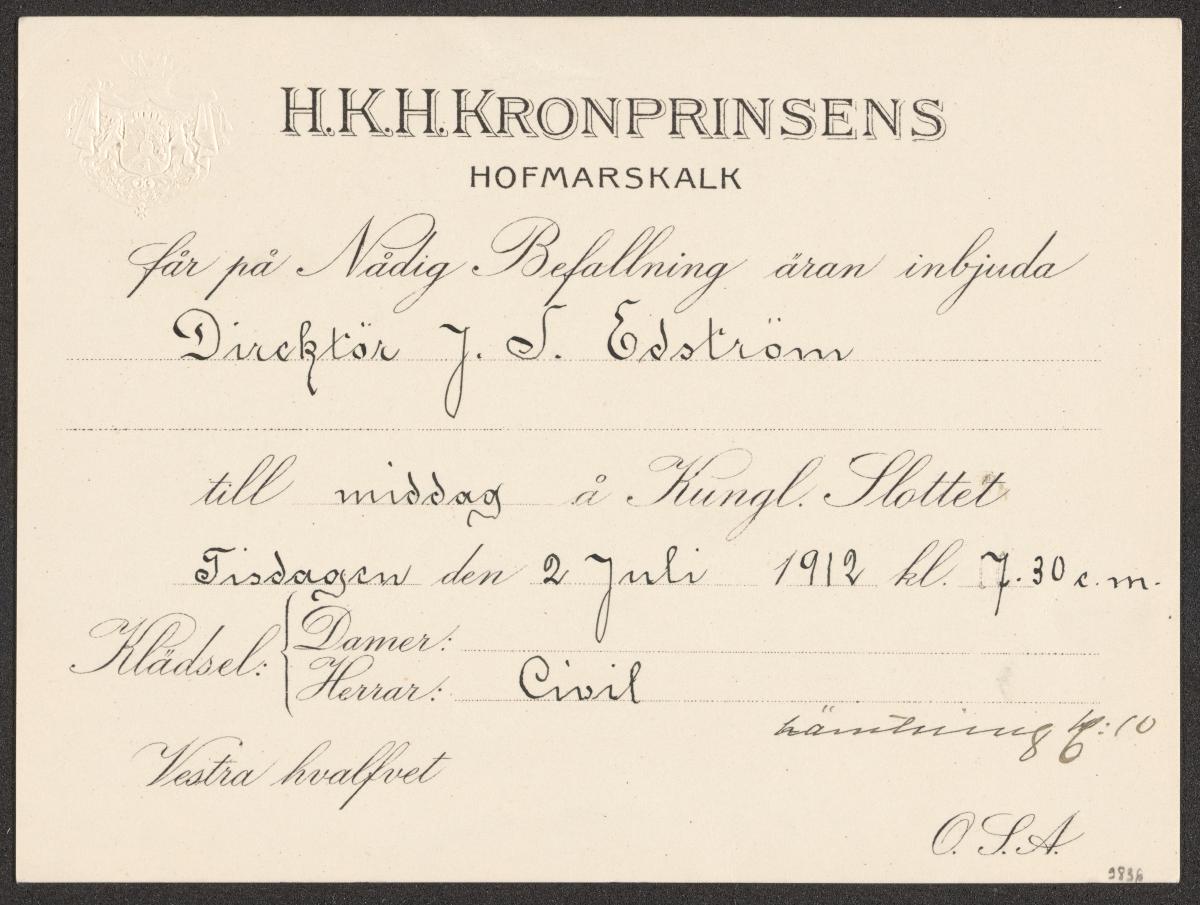 H.K.H. KRONPRINSENS
HOFMARSKALK
får på Nådig Befallning äran inbjuda
Direktör J. S. Edström
till middag å Kungl. Slottet
Tisdagen den 2 Juli 1912 kl. 7.30 e.m.
Klädsel: { Damer:
Herrar: Civil
hämtning kl: 10
Vestra hvalfvet
O. S. A.
9836